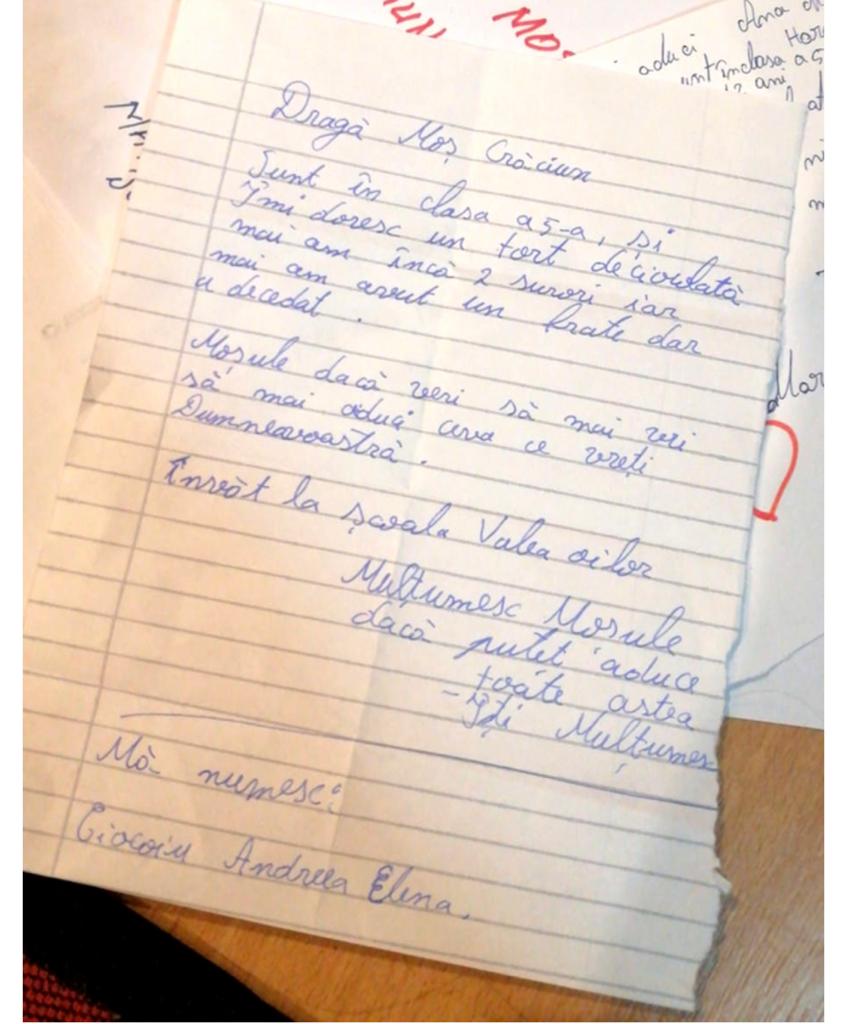 MOȘ
aduci Ana
sunt în clasa a 5
12 ani
Mar
Dragă Moș Crăciun
Sunt în clasa a 5-a, și
Îmi doresc un tort de ciocolată
mai am încă 2 surori iar
mai am avut un frate dar
a decedat.
Moșule dacă vrei să mai vii
să mai aduci ceva ce vreți
Dumneavoastră.
Învăt la școala Valea oilor
Mulțumesc Moșule
dacă putet aduce
toate astea
- Iți Mulțumesc
Mă numesc:
Ciocoiu Andreea Elena.